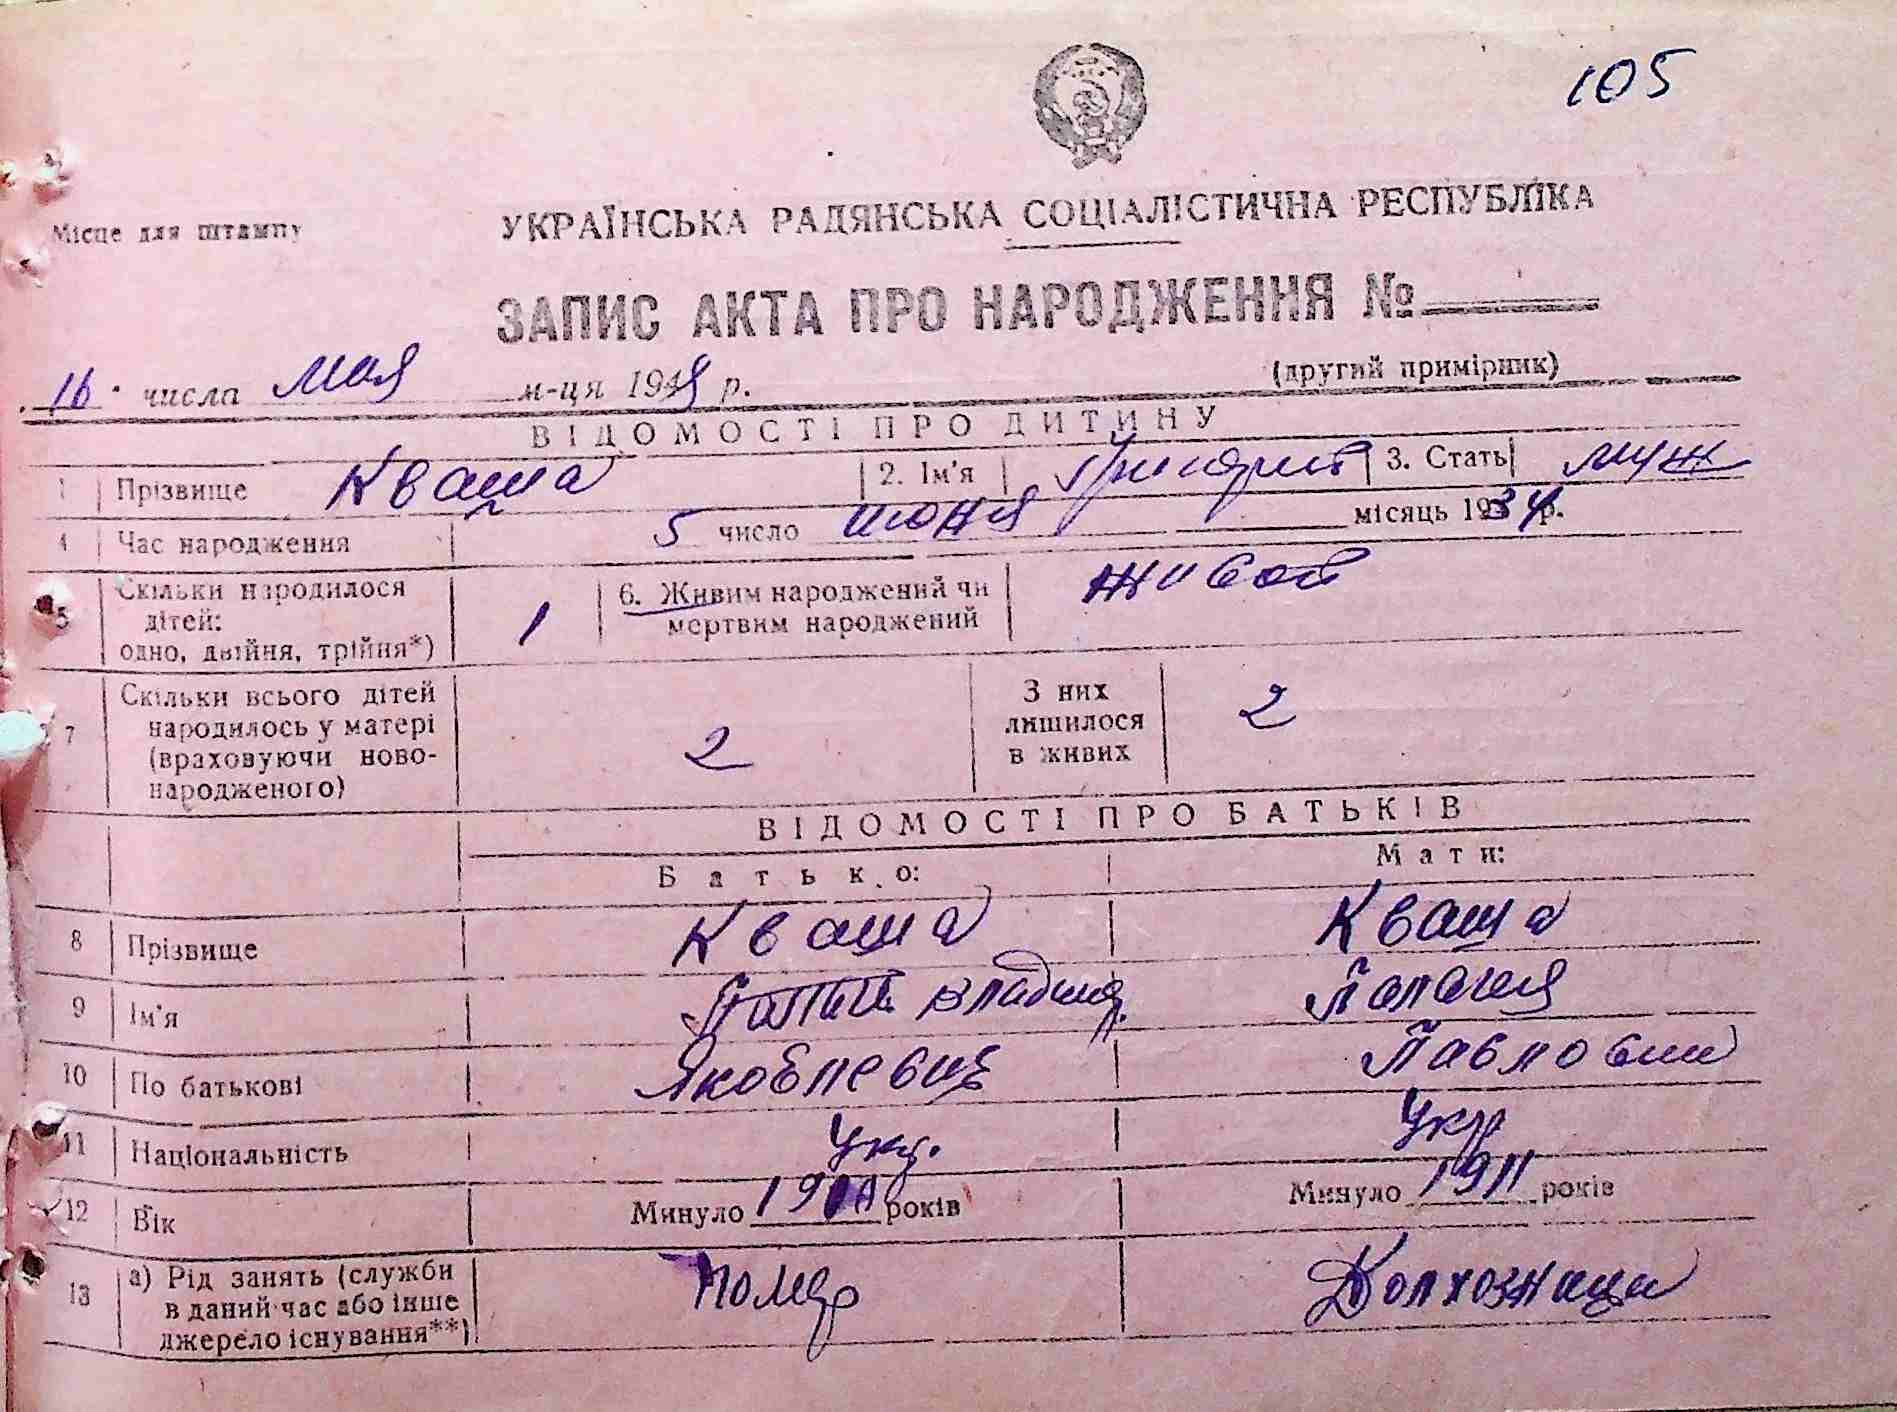 105
Місце для штампу
УКРАЇНСЬКА РАДЯНСЬКА СОЦІАЛІСТИЧНА РЕСПУБЛІКА
ЗАПИС АКТА ПРО НАРОДЖЕННЯ №
(другий примірник)
16 числа мая м-ця 1949 р.
ВІДОМОСТІ ПРО ДИТИНУ
1 Прізвище Кваша 2. Ім'я Григорий 3. Стать муж
4 Час народження 5 число июня місяць 1934 р.
5 Скільки народилося дітей: одно, двійня, трійня*) 1 6. Живим народжений чи мертвим народжений живой
7 Скільки всього дітей народилось у матері (враховуючи новонародженого) 2 З них лишилося в живих 2
ВІДОМОСТІ ПРО БАТЬКІВ
Батько: Мати:
8 Прізвище Кваша Кваша
9 Ім'я Владим. Палагия
10 По батькові Яковлевич Павловна
11 Національність Укр. Укр
12 Вік Минуло років Минуло 1911 років
13 а) Рід занять (служби в даний час або інше джерело існування**) помер Колхозница